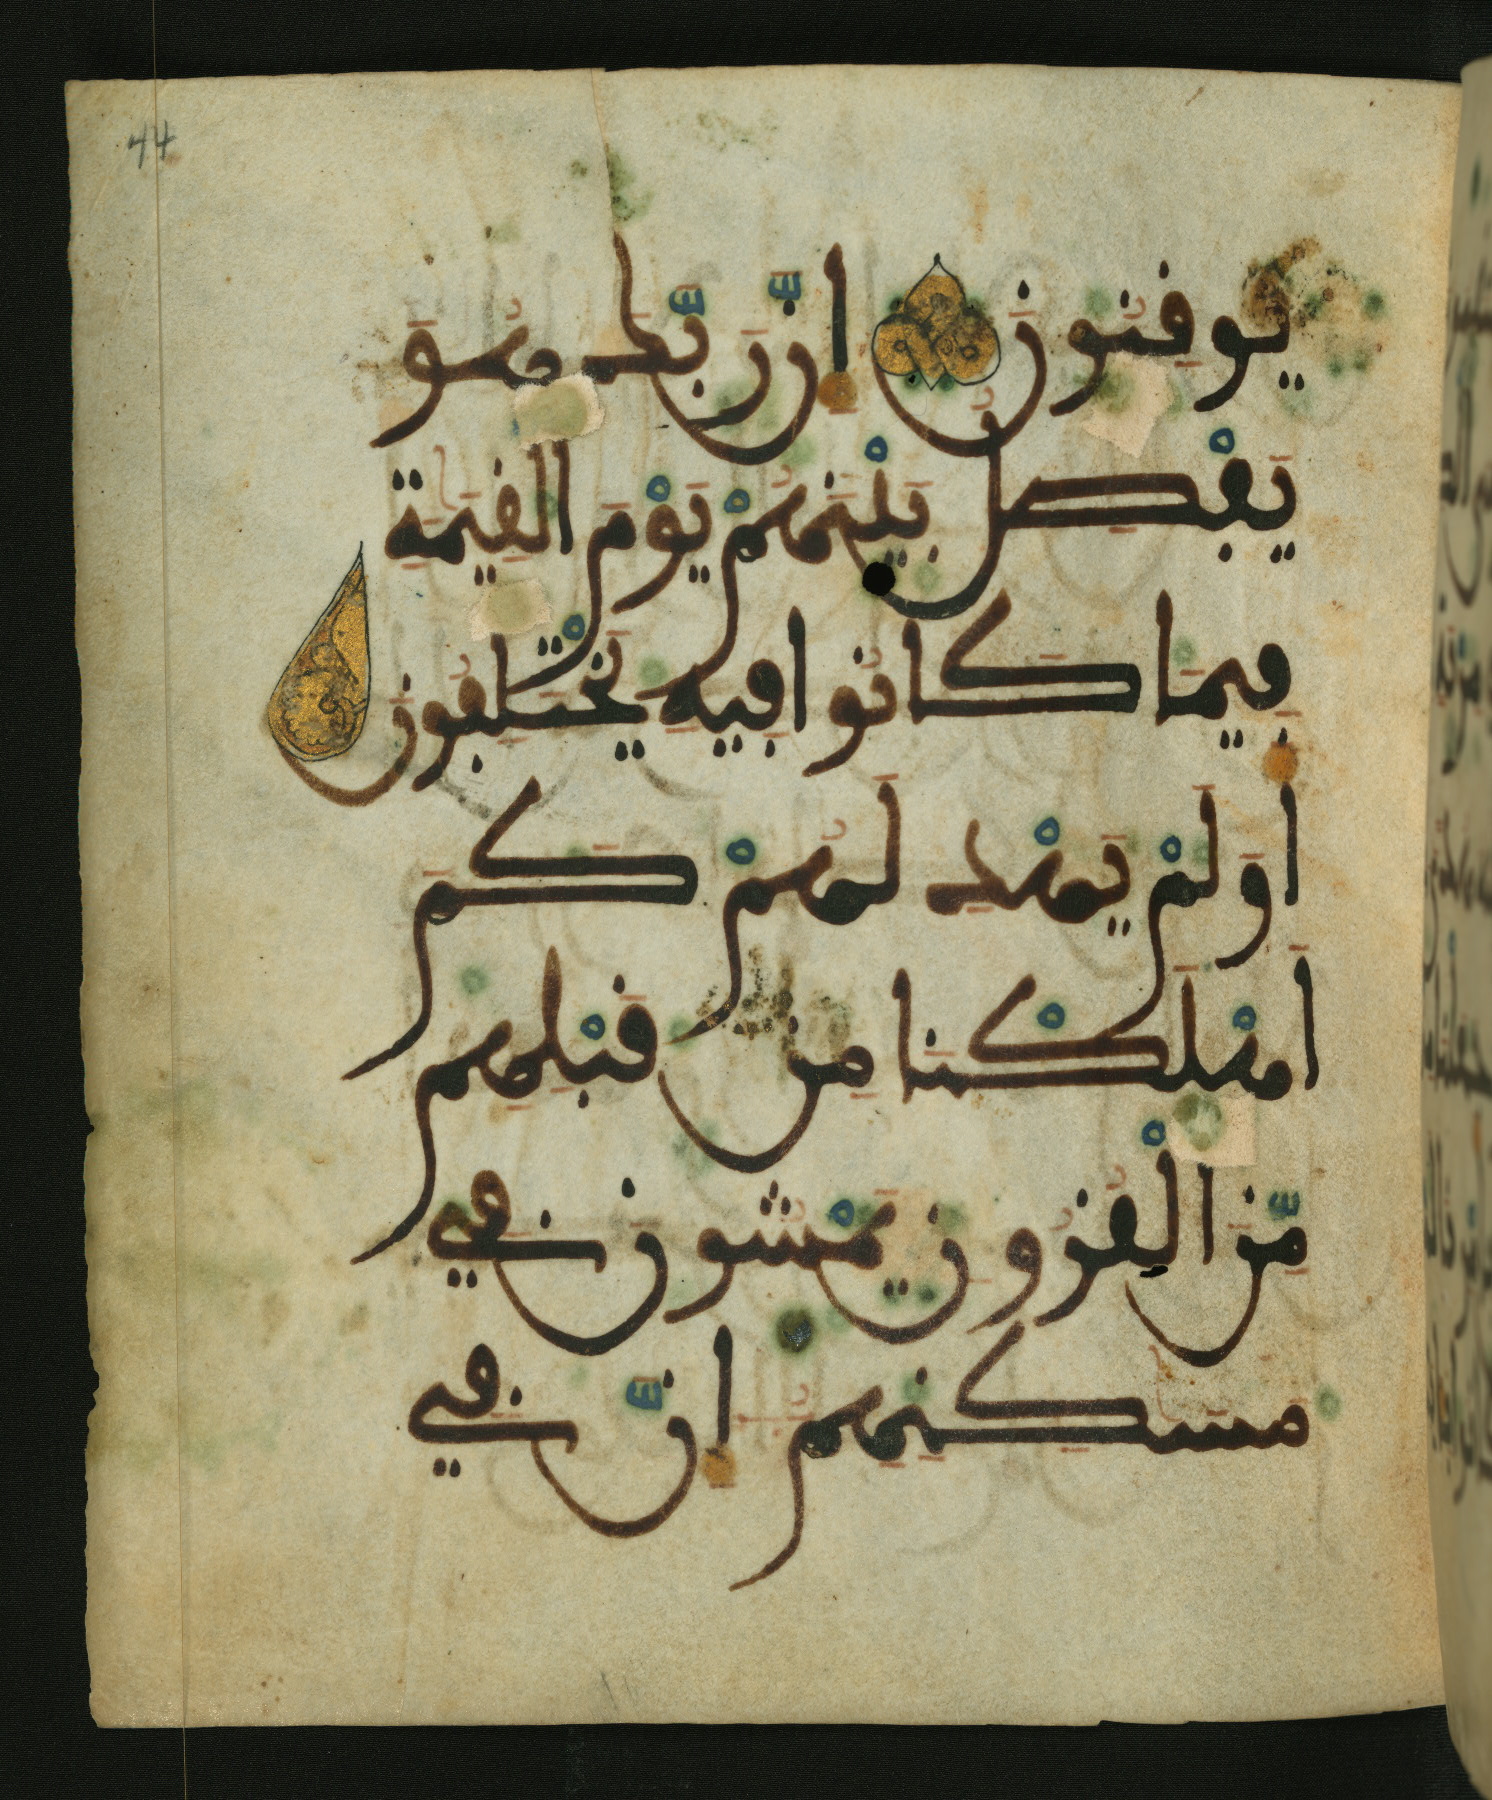 44
يُوقِنُونَ إِنَّ رَبَّكَ هُوَ
يَفْصِلُ بَيْنَهُمْ يَوْمَ الْقِيَٰمَةِ
فِيمَا كَانُوا فِيهِ يَخْتَلِفُونَ
أَوَلَمْ يَهْدِ لَهُمْ كَمَ
اَهْلَكْنَا مِن قَبْلِهِم
مِّنَ الْقُرُونِ يَمْشُونَ فِي
مَسَٰكِنِهِمُ إِنَّ فِي